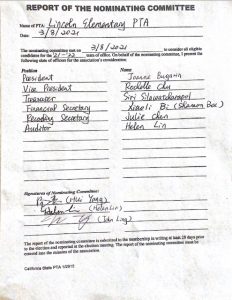 REPORT OF THE NOMINATING COMMITTEE
Name of PTA: Lincoln Elementary PTA
Date: 3/8/2021
The nominating committee met on 3/8/2021 to consider all eligible
candidates for 21-22 term of office. On behalf of the nominating committee, I present the
following slate of officers for the association's consideration:
Position Name
President Joanne Bugarin
Vice President Rochelle Chu
Treasurer Siri
Financial Secretary Xiaoli Bi (Shannon Bae)
Recording Secretary Julie Chen
Auditor Helen Lin
Signatures of Nominating Committee:
(Hui Yang)
(Helen Lin)
(John Ling)
The report of the nominating committee is submitted to the membership in writing at least 28 days prior
to the election and reported at the election meeting. The report of the nominating committee must be
entered into the minutes of the association.
California State PTA 1/2012